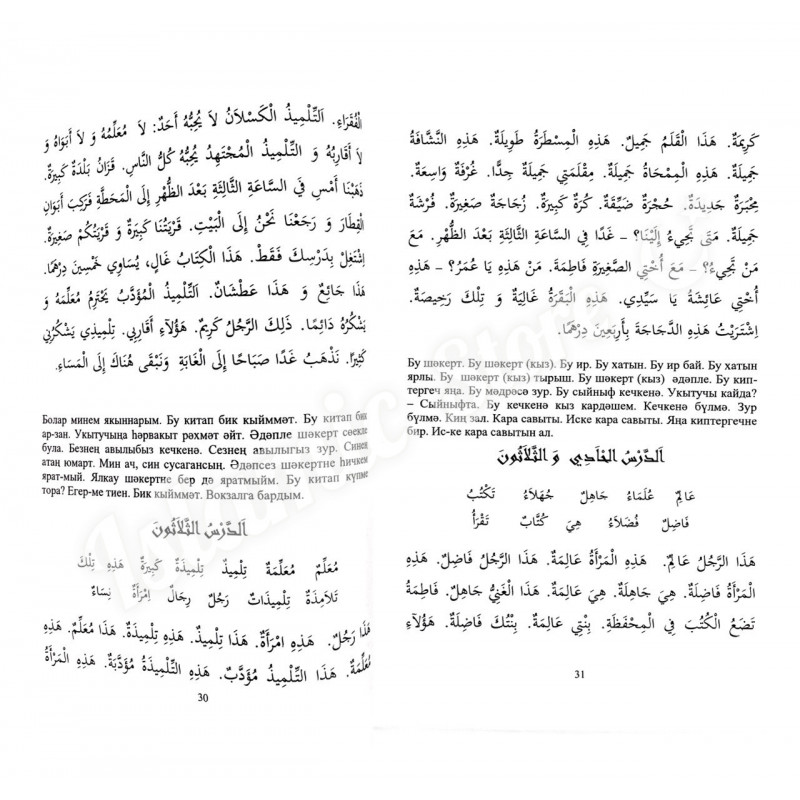 الْفُقَرَاءِ. اَلتِّلْمِيذُ الْكَسْلَانُ لَا يُحِبُّهُ أَحَدٌ: لَا مُعَلِّمُهُ وَ لَا أَبَوَاهُ وَ
لَا أَقَارِبُهُ وَ التِّلْمِيذُ الْمُجْتَهِدُ يُحِبُّهُ كُلُّ النَّاسِ. قَزَانُ بَلْدَةٌ كَبِيرَةٌ.
ذَهَبْنَا أَمْسِ فِي السَّاعَةِ الثَّالِثَةِ بَعْدَ الظُّهْرِ إِلَى الْمَحَطَّةِ فَرَكِبَ أَبَوَانِ
الْقِطَارَ وَ رَجَعْنَا نَحْنُ إِلَى الْبَيْتِ. قَرْيَتُنَا كَبِيرَةٌ وَ قَرْيَتُكُمْ صَغِيرَةٌ.
اِشْتَغِلْ بِدَرْسِكَ فَقَطْ. هَذَا الْكِتَابُ غَالٍ، يُسَاوِي خَمْسِينَ دِرْهَمًا.
هَذَا جَائِعٌ وَ هَذَا عَطْشَانُ. اَلتِّلْمِيذُ الْمُؤَدَّبُ يَحْتَرِمُ مُعَلِّمَهُ وَ
يَشْكُرُهُ دَائِمًا. ذَلِكَ الرَّجُلُ كَرِيمٌ. هَؤُلَآءِ أَقَارِبِي. تِلْمِيذِي يَشْكُرُنِي
كَثِيرًا. نَذْهَبُ غَدًا صَبَاحًا إِلَى الْغَابَةِ وَنَبْقَى هُنَاكَ إِلَى الْمَسَاءِ.
Болар минем якыннарым. Бу китап бик кыйммәт. Бу китап бик
ар-зан. Укытучыңа һәрвакыт рәхмәт әйт. Әдәпле шәкерт сөекле
була. Безнең авылыбыз кечкенә. Сезнең авылыгыз зур. Синең
атаң юмарт. Мин ач, син сусагансың. Әдәпсез шәкертне һичкем
ярат-мый. Ялкау шәкертне бер дә яратмыйм. Бу китап күпме
тора? Егер-ме тиен. Бик кыйммәт. Вокзалга бардым.
اَلدَّرْسُ الثَّلَاثُونَ
مُعَلِّمٌ مُعَلِّمَةٌ تِلْمِيذٌ تِلْمِيذَةٌ كَبِيرَةٌ هَذِهِ تِلْكَ
تَلَامِذَةٌ تِلْمِيذَاتٌ رَجُلٌ رِجَالٌ اِمْرَأَةٌ نِسَاءٌ
هَذَا رَجُلٌ. هَذِهِ امْرَأَةٌ. هَذَا تِلْمِيذٌ. هَذِهِ تِلْمِيذَةٌ. هَذَا مُعَلِّمٌ. هَذِهِ
مُعَلِّمَةٌ. هَذَا التِّلْمِيذُ مُؤَدَّبٌ. هَذِهِ التِّلْمِيذَةُ مُؤَدَّبَةٌ. هَذِهِ الْمَرْأَةُ
30
كَرِيمَةٌ. هَذَا الْقَلَمُ جَمِيلٌ. هَذِهِ الْمِسْطَرَةُ طَوِيلَةٌ. هَذِهِ النَّشَّافَةُ
جَمِيلَةٌ. هَذِهِ الْمِمْحَاةُ جَمِيلَةٌ. مِقْلَمَتِي جَمِيلَةٌ جِدًّا. غُرْفَةٌ وَاسِعَةٌ.
مِحْبَرَةٌ جَدِيدَةٌ. حُجْرَةٌ ضَيِّقَةٌ. كُرَةٌ كَبِيرَةٌ. زُجَاجَةٌ صَغِيرَةٌ. فُرْشَةٌ
جَمِيلَةٌ. مَتَى تَجِيءُ إِلَيْنَا؟ – غَدًا فِي السَّاعَةِ الثَّالِثَةِ بَعْدَ الظُّهْرِ. مَعَ
مَنْ تَجِيءُ؟ – مَعَ أُخْتِي الصَّغِيرَةِ فَاطِمَةَ. مَنْ هَذِهِ يَا عُمَرُ؟ – هَذِهِ
أُخْتِي عَائِشَةُ يَا سَيِّدِي. هَذِهِ الْبَقَرَةُ غَالِيَةٌ وَ تِلْكَ رَخِيصَةٌ.
اِشْتَرَيْتُ هَذِهِ الدَّجَاجَةَ بِأَرْبَعِينَ دِرْهَمًا.
Бу шәкерт. Бу шәкерт (кыз). Бу ир. Бу хатын. Бу ир бай. Бу хатын
ярлы. Бу шәкерт (кыз) тырыш. Бу шәкерт (кыз) әдәпле. Бу кип-
тергеч яңа. Бу мәдрәсә зур. Бу сыйныф кечкенә. Укытучы кайда?
– Сыйныфта. Бу кечкенә кыз кардәшем. Кечкенә бүлмә. Зур
бүлмә. Киң зал. Кара савыты. Иске кара савыты. Яңа киптергечне
бир. Ис-ке кара савытын ал.
اَلدَّرْسُ الْحَادِي وَ الثَّلَاثُونَ
عَالِمٌ عُلَمَاءُ جَاهِلٌ جُهَلَاءُ تَكْتُبُ
فَاضِلٌ فُضَلَاءُ هِيَ كُتَّابٌ تَقْرَأُ
هَذَا الرَّجُلُ عَالِمٌ. هَذِهِ الْمَرْأَةُ عَالِمَةٌ. هَذَا الرَّجُلُ فَاضِلٌ. هَذِهِ
الْمَرْأَةُ فَاضِلَةٌ. هِيَ جَاهِلَةٌ. هِيَ عَالِمَةٌ. هَذَا الْغَنِيُّ جَاهِلٌ. فَاطِمَةُ
تَضَعُ الْكُتُبَ فِي الْمِحْفَظَةِ. بِنْتِي عَالِمَةٌ. بِنْتُكَ فَاضِلَةٌ. هَؤُلَآءِ
31